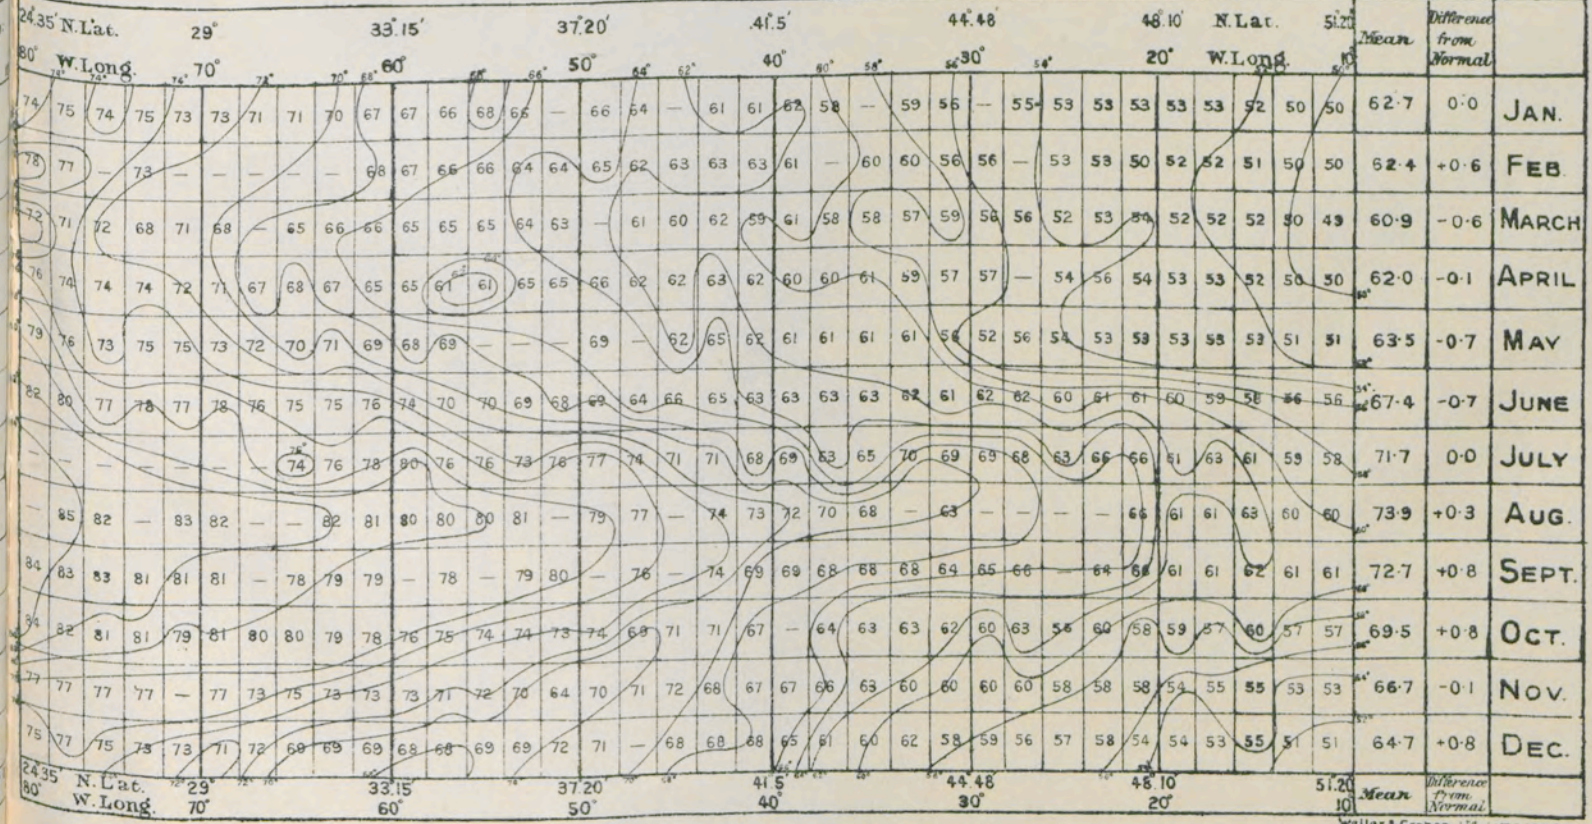 24.35' N.Lat. 29° 33°.15' 37°.20' .41°.5' 44°.48' 48°.10' N.Lat. 51.20' Mean Difference from Normal
80° W.Long. 70° 60° 50° 40° 30° 20° W.Long. 10°
74 75 74 75 73 73 71 71 70 67 67 66 68 66 — 66 64 — 61 61 62 58 — 59 56 — 55 53 53 53 53 53 52 50 50 62.7 0.0 JAN.
78 77 — 73 — — — — — 68 67 66 66 64 64 65 62 63 63 63 61 — 60 60 56 56 — 53 53 50 52 52 51 50 50 62.4 +0.6 FEB.
72 71 72 68 71 68 — 65 66 66 65 65 65 64 63 — 61 60 62 59 61 58 58 57 59 56 56 52 53 54 52 52 52 50 49 60.9 -0.6 MARCH
76 74 74 74 72 71 67 68 67 65 65 61 61 65 65 66 62 62 63 62 60 60 61 59 57 57 — 54 56 54 53 53 52 50 50 62.0 -0.1 APRIL
79 76 73 75 75 73 72 70 71 69 68 69 — — — 69 — 62 65 62 61 61 61 61 56 52 56 54 53 53 53 53 53 51 51 63.5 -0.7 MAY
82 80 77 78 77 78 76 75 75 76 74 70 70 69 68 69 64 66 65 63 63 63 63 62 61 62 62 60 61 61 60 59 56 56 56 67.4 -0.7 JUNE
— — — — — — — 74 76 78 80 76 76 73 76 77 74 71 71 68 69 63 65 70 69 69 68 63 66 66 61 63 61 59 58 71.7 0.0 JULY
— 85 82 — 83 82 — — 82 81 80 80 80 81 — 79 77 — 74 73 72 70 68 — 63 — — — — 66 61 61 63 60 60 73.9 +0.3 AUG.
84 83 83 81 81 81 — 78 79 79 — 78 — 79 80 — 76 — 74 69 69 68 68 68 64 65 66 — 64 66 61 61 62 61 61 72.7 +0.8 SEPT.
84 82 81 81 79 81 80 80 79 78 76 75 74 74 73 74 69 71 71 67 — 64 63 63 62 60 63 56 60 58 59 57 60 57 57 69.5 +0.8 OCT.
77 77 77 77 — 77 73 75 73 73 73 71 72 70 64 70 71 72 68 67 67 66 63 60 60 60 60 58 58 58 54 55 55 53 53 66.7 -0.1 NOV.
75 77 75 73 73 71 72 69 69 69 68 68 69 69 72 71 — 68 68 68 65 61 60 62 58 59 56 57 58 54 54 53 55 51 51 64.7 +0.8 DEC.
24.35 N.Lat. 29° 33.15' 37.20 41.5' 44.48 48.10 51.20 Mean Difference from Normal
80° W.Long. 70° 60° 50° 40° 30° 20° 10°